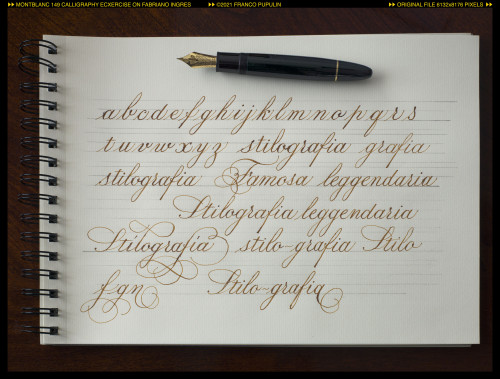 ▸▸ MONTBLANC 149 CALLIGRAPHY ECXERCISE ON FABRIANO INGRES ▸▸ ©2021 FRANCO PUPULIN ▸▸ ORIGINAL FILE 6132x8176 PIXELS ▸▸
a b c d e f g h i j k l m n o p q r s
t u v w x y z stilografia grafia
stilografia Famosa leggendaria
Stilografia leggendaria
Stilografia stilo-grafia Stilo
f g n Stilo-grafia